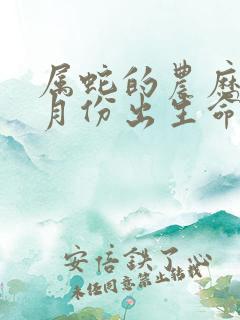 属蛇的農历
月份出生命
安倍鉄了心
未经同意禁止转载